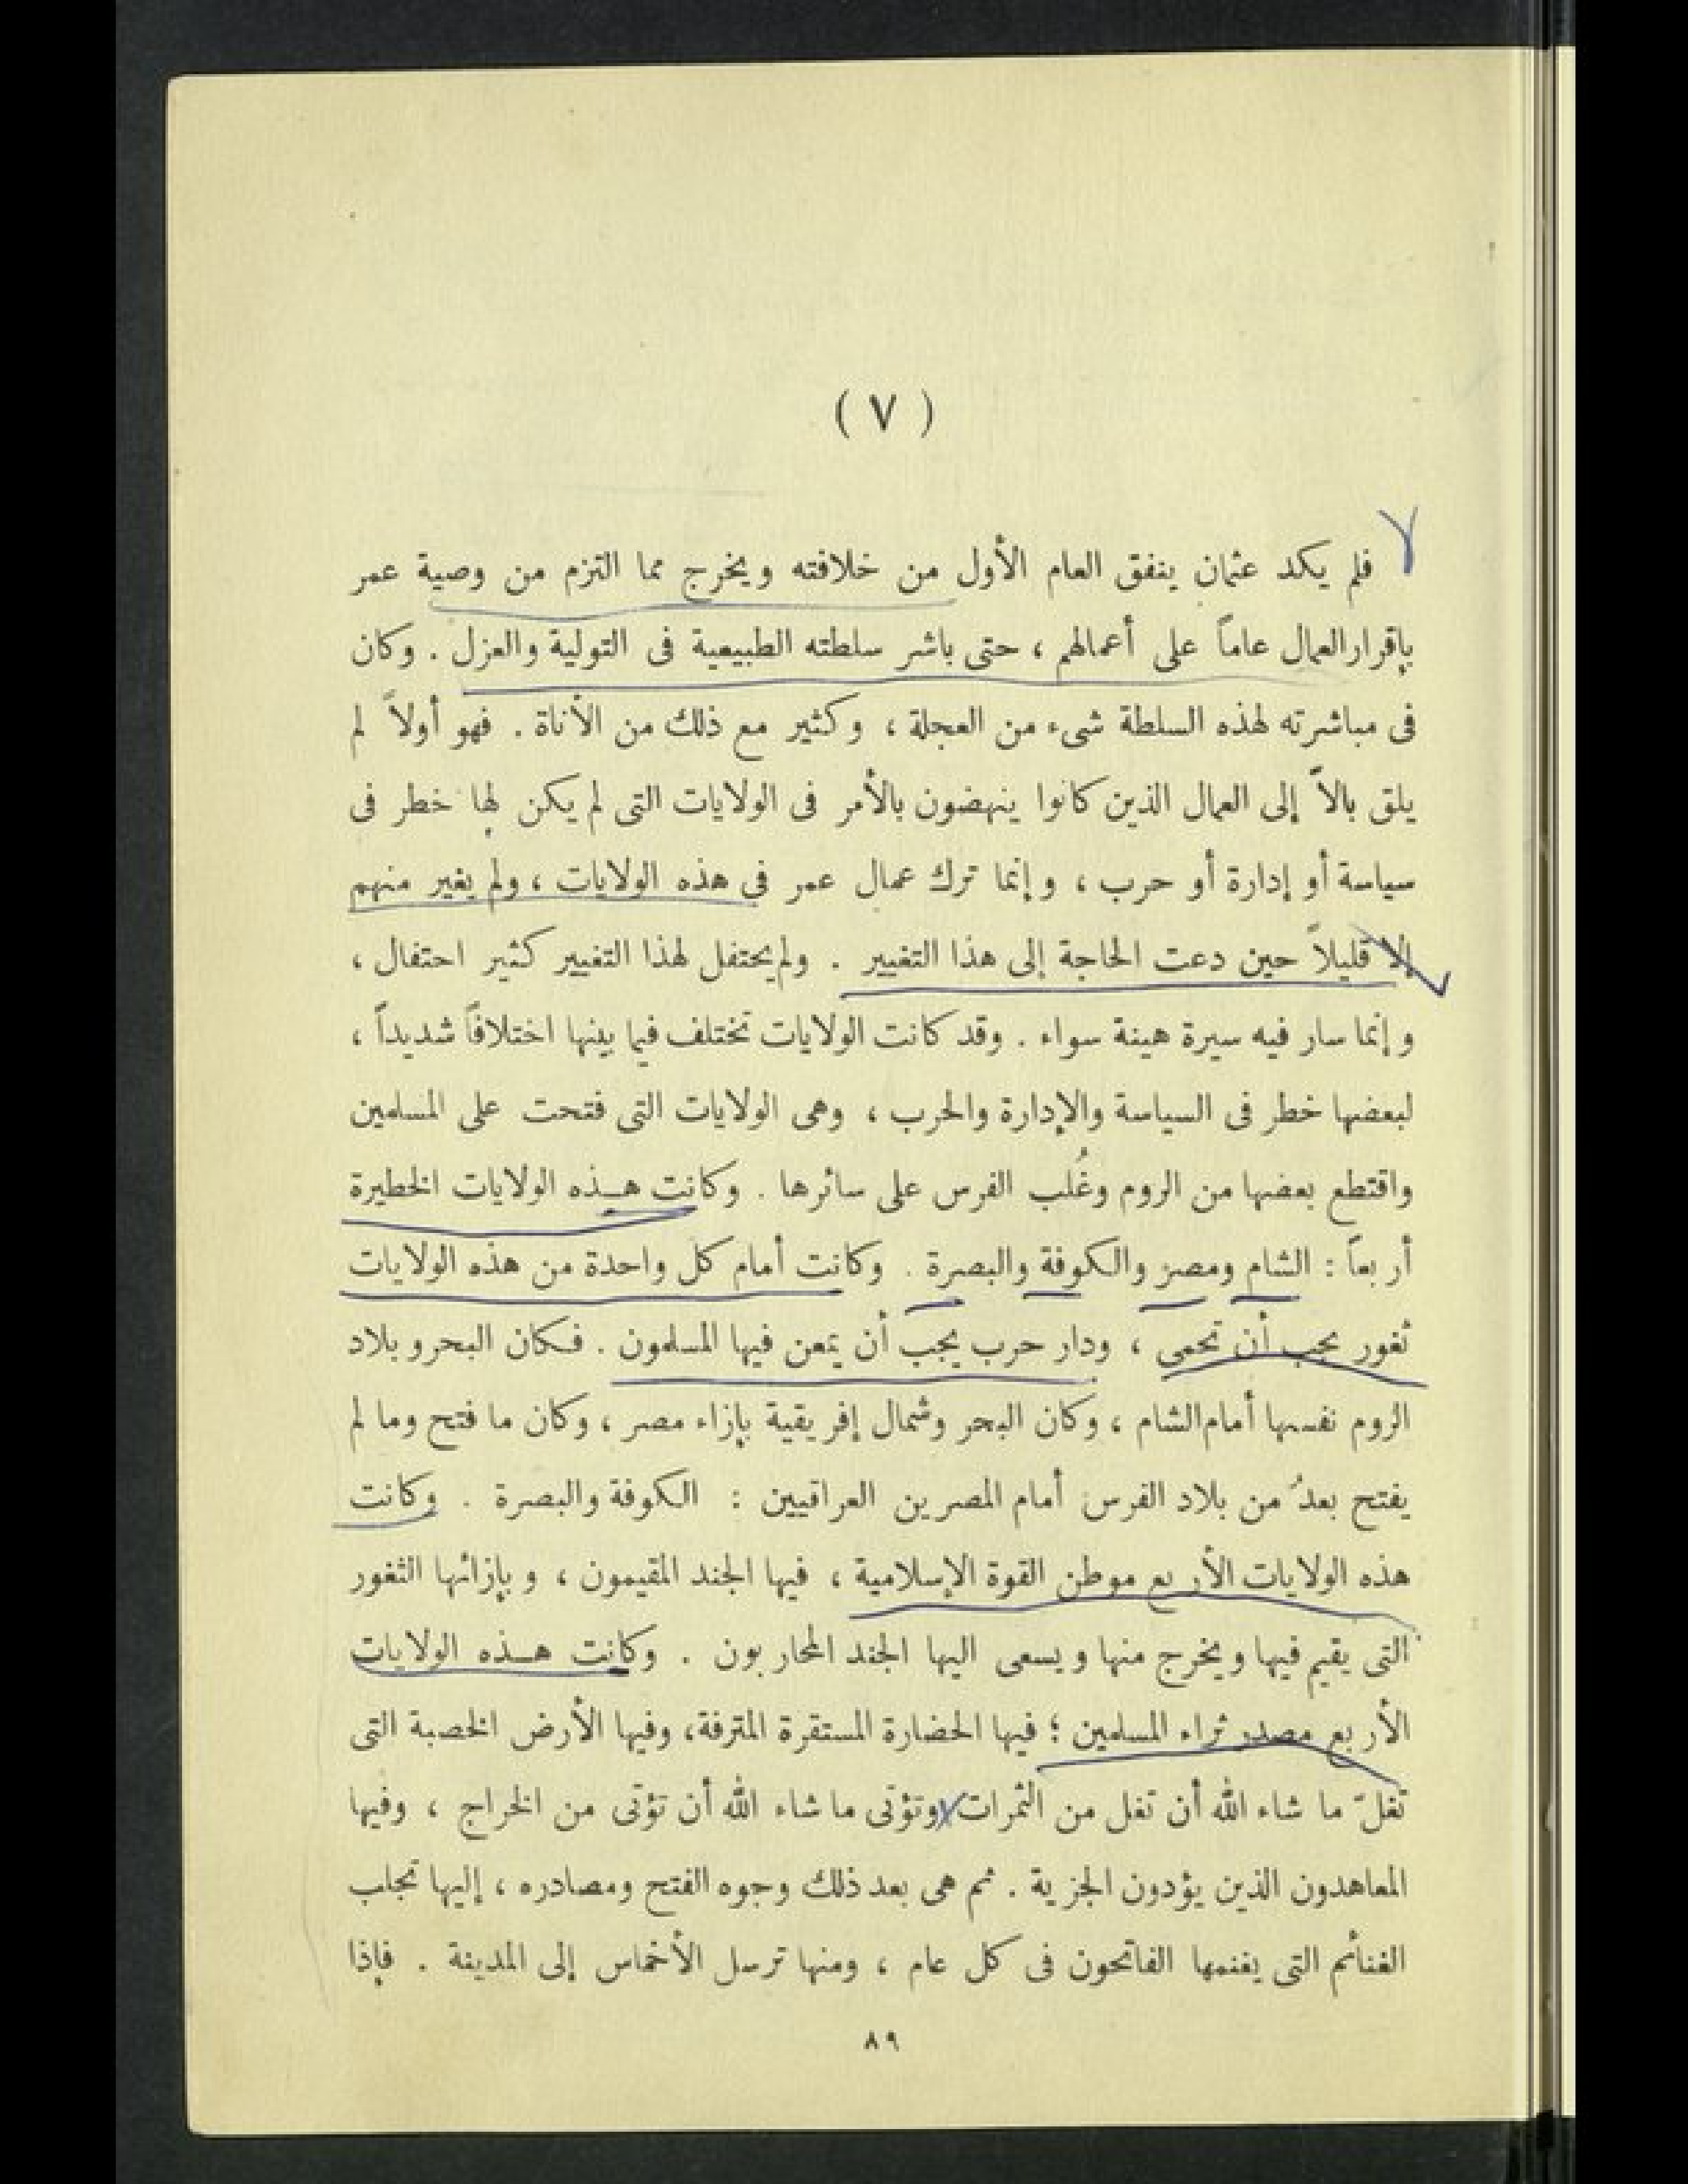 ( ٧ )
فلم يكد عثمان ينفق العام الأول من خلافته ويخرج مما التزم من وصية عمر
بإقرار العمال عاماً على أعمالهم ، حتى باشر سلطته الطبيعية فى التولية والعزل . وكان
فى مباشرته لهذه السلطة شىء من العجلة ، وكثير مع ذلك من الأناة . فهو أولاً لم
يلق بالاً إلى العمال الذين كانوا ينهضون بالأمر فى الولايات التى لم يكن لها خطر فى
سياسة أو إدارة أو حرب ، وإنما ترك عمال عمر فى هذه الولايات ، ولم يغير منهم
إلا قليلاً حين دعت الحاجة إلى هذا التغيير . ولم يحتفل لهذا التغيير كثير احتفال ،
وإنما سار فيه سيرة هينة سواء . وقد كانت الولايات تختلف فيما بينها اختلافاً شديداً ،
لبعضها خطر فى السياسة والإدارة والحرب ، وهى الولايات التى فتحت على المسلمين
واقتطع بعضها من الروم وغُلب الفرس على سائرها . وكانت هـذه الولايات الخطيرة
أربعاً : الشام ومصر والكوفة والبصرة . وكانت أمام كل واحدة من هذه الولايات
ثغور يجب أن تحمى ، ودار حرب يجب أن يمعن فيها المسلمون . فكان البحر وبلاد
الروم نفسها أمام الشام ، وكان البحر وشمال إفريقية بإزاء مصر ، وكان ما فتح وما لم
يفتح بعدُ من بلاد الفرس أمام المصرين العراقيين : الكوفة والبصرة . وكانت
هذه الولايات الأربع موطن القوة الإسلامية ، فيها الجند المقيمون ، وبإزائها الثغور
التى يقيم فيها ويخرج منها ويسعى اليها الجند المحاربون . وكانت هـذه الولايات
الأربع مصدر ثراء المسلمين ؛ فيها الحضارة المستقرة المترفة، وفيها الأرض الخصبة التى
تغلّ ما شاء الله أن تغل من الثمرات وتؤتى ما شاء الله أن تؤتى من الخراج ، وفيها
المعاهدون الذين يؤدون الجزية . ثم هى بعد ذلك وجوه الفتح ومصادره ، إليها تجلب
الغنائم التى يغنمها الفاتحون فى كل عام ، ومنها ترسل الأخماس إلى المدينة . فإذا
٨٩